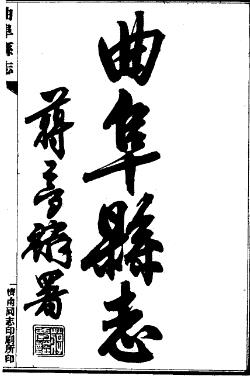 曲阜縣志
蔣夢麟署
曲阜縣志
濟南同志印刷所印